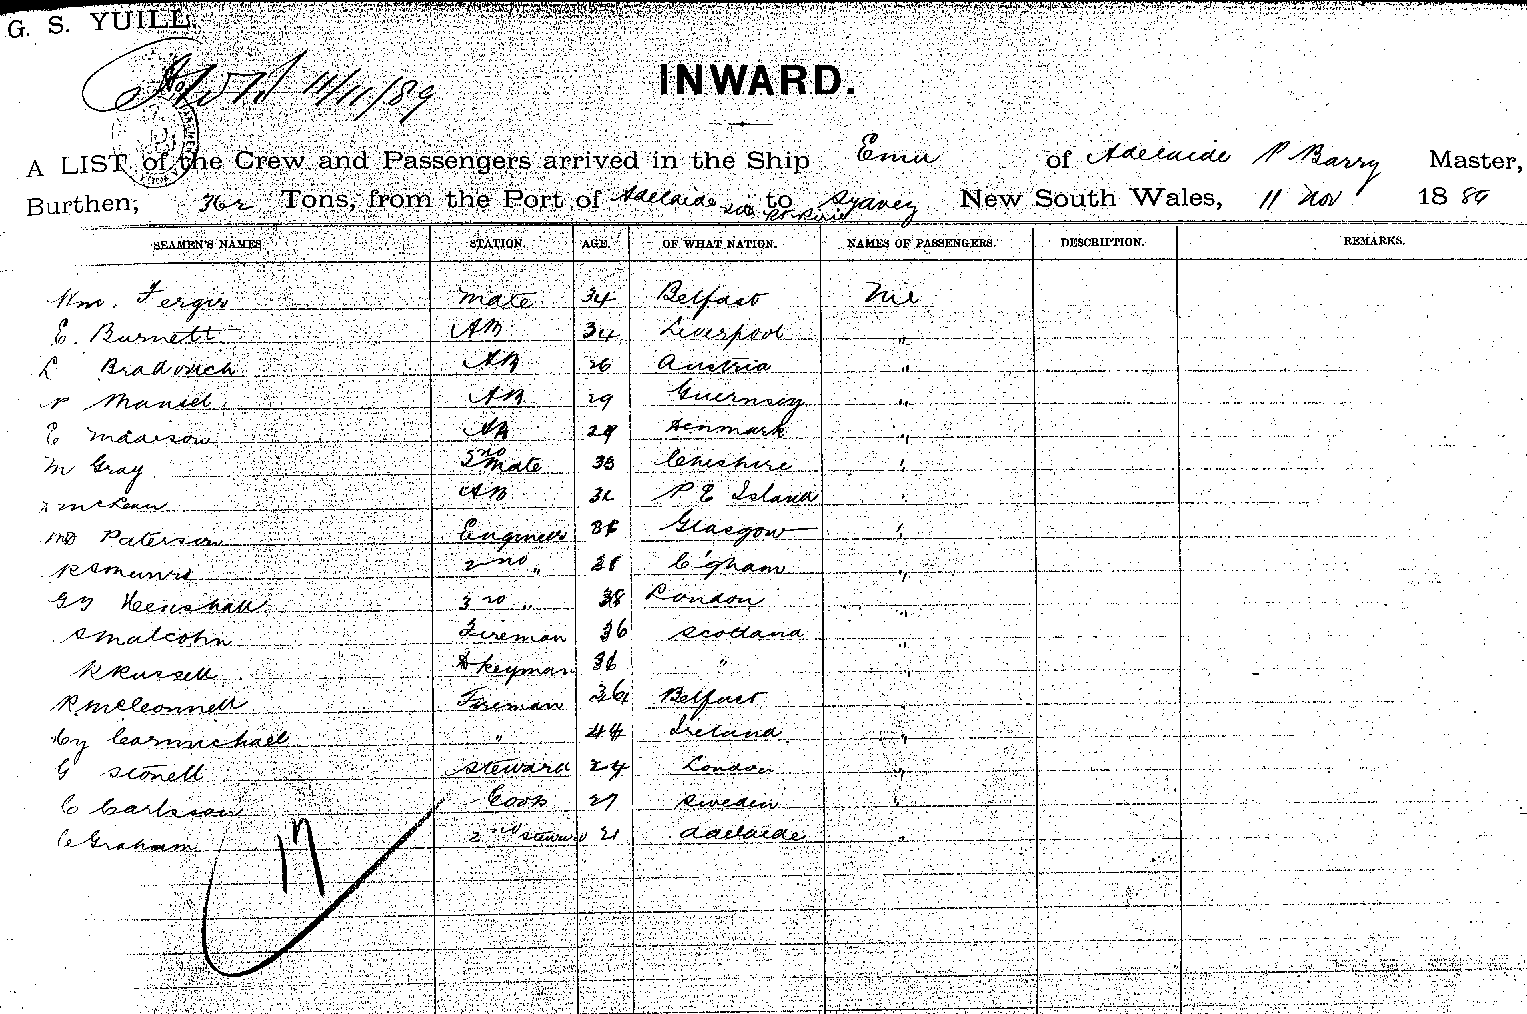 G. S. YUILL
11/11/89
INWARD.
A LIST of the Crew and Passengers arrived in the Ship Emu of Adelaide P Barry Master,
Burthen; 362 Tons, from the Port of Adelaide via Pt Pirie to Sydney New South Wales, 11 Nov 1889
SEAMEN'S NAMES STATION. AGE. OF WHAT NATION. NAMES OF PASSENGERS. DESCRIPTION. REMARKS.
Wm. Fergus Mate 34 Belfast Nil
E. Burnett AB 34 Liverpool "
L Bradovich AB 26 Austria "
Maniel AB 29 Guernsey "
E Madison AB 29 Denmark "
M Gray 2nd Mate 33 Cheshire "
McLean AB 32 P E Island "
Paterson Engineer Glasgow "
R Munro 2nd " C'gham "
Henshall 3rd " 38 London "
S Malcolm Fireman 36 Scotland "
R Russell Dkeyman 36 " "
R McConnell Fireman 36 Belfast "
Hy Carmichael " 44 Ireland "
G Stonell Steward 24 London "
C Carlsson Cook 27 Sweden "
C Graham 2nd Steward 21 Adelaide "
17